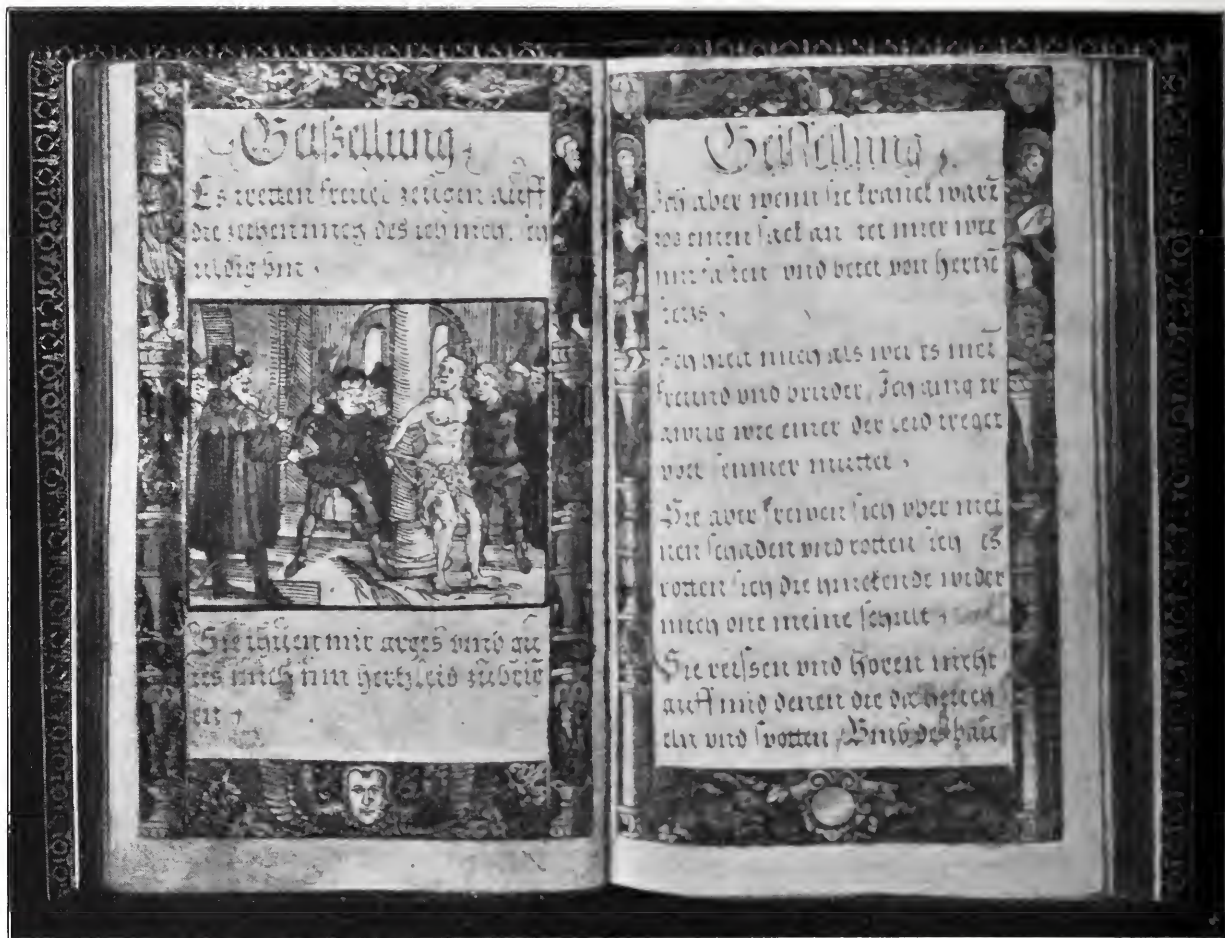 Geisselung
Es tretten frevel zeugen auff
die zeihen mich des ich nich sch
uldig bin
Sie thuen mir arges vmb gu
tes mich inn hertzleid zu
en
Geisselung
Ich aber wenn sie kranck warē
einen sack an tet mier wee
mit fasten vnd betet von hertzē
Ich hielt mich als wer es mei
freund vnd bruder, Ich ging
wie einer der leid treget
vber seiner mutter
Sie aber frewen sich vber mei
nen schaden vnd rotten sich es
rotten sich die hinckende wider
mich one meine schult
Sie reissen vnd horen nicht
auff mid denen die da heuch
eln vnd spotten, Vmb des bau